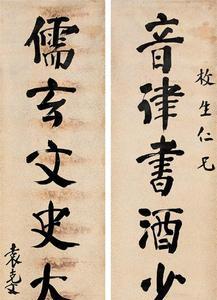 枚生仁兄
音律書酒少
儒玄文史大
袁克文